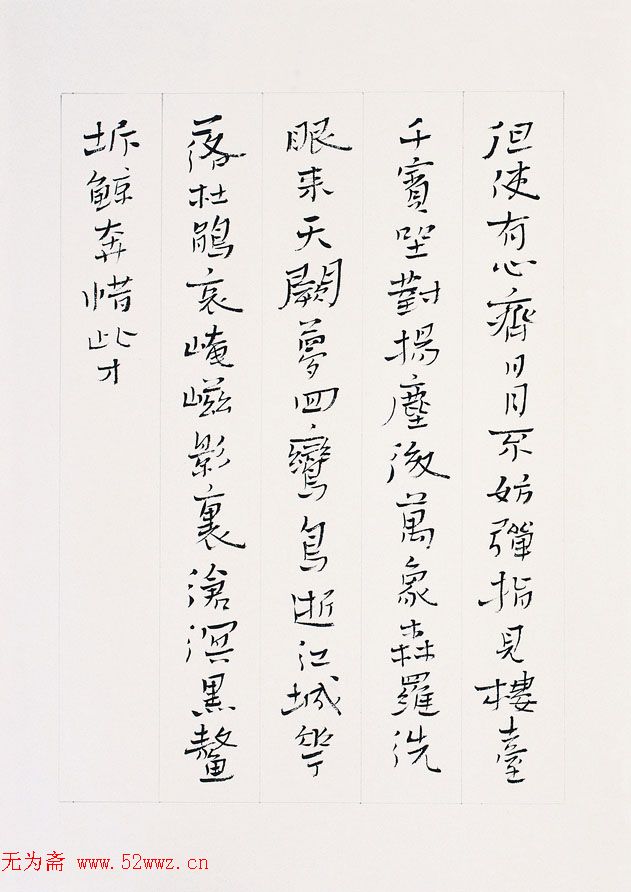 但使有心齊日月不妨彈指見樓臺
千賓坐對揚塵後萬象森羅洗
眼來天闕夢回鸞鳥逝江城華
落杜鵑哀崦嵫影裏滄溟黑鼇
坼鯨奔惜此才
无为斋 www.52wwz.cn